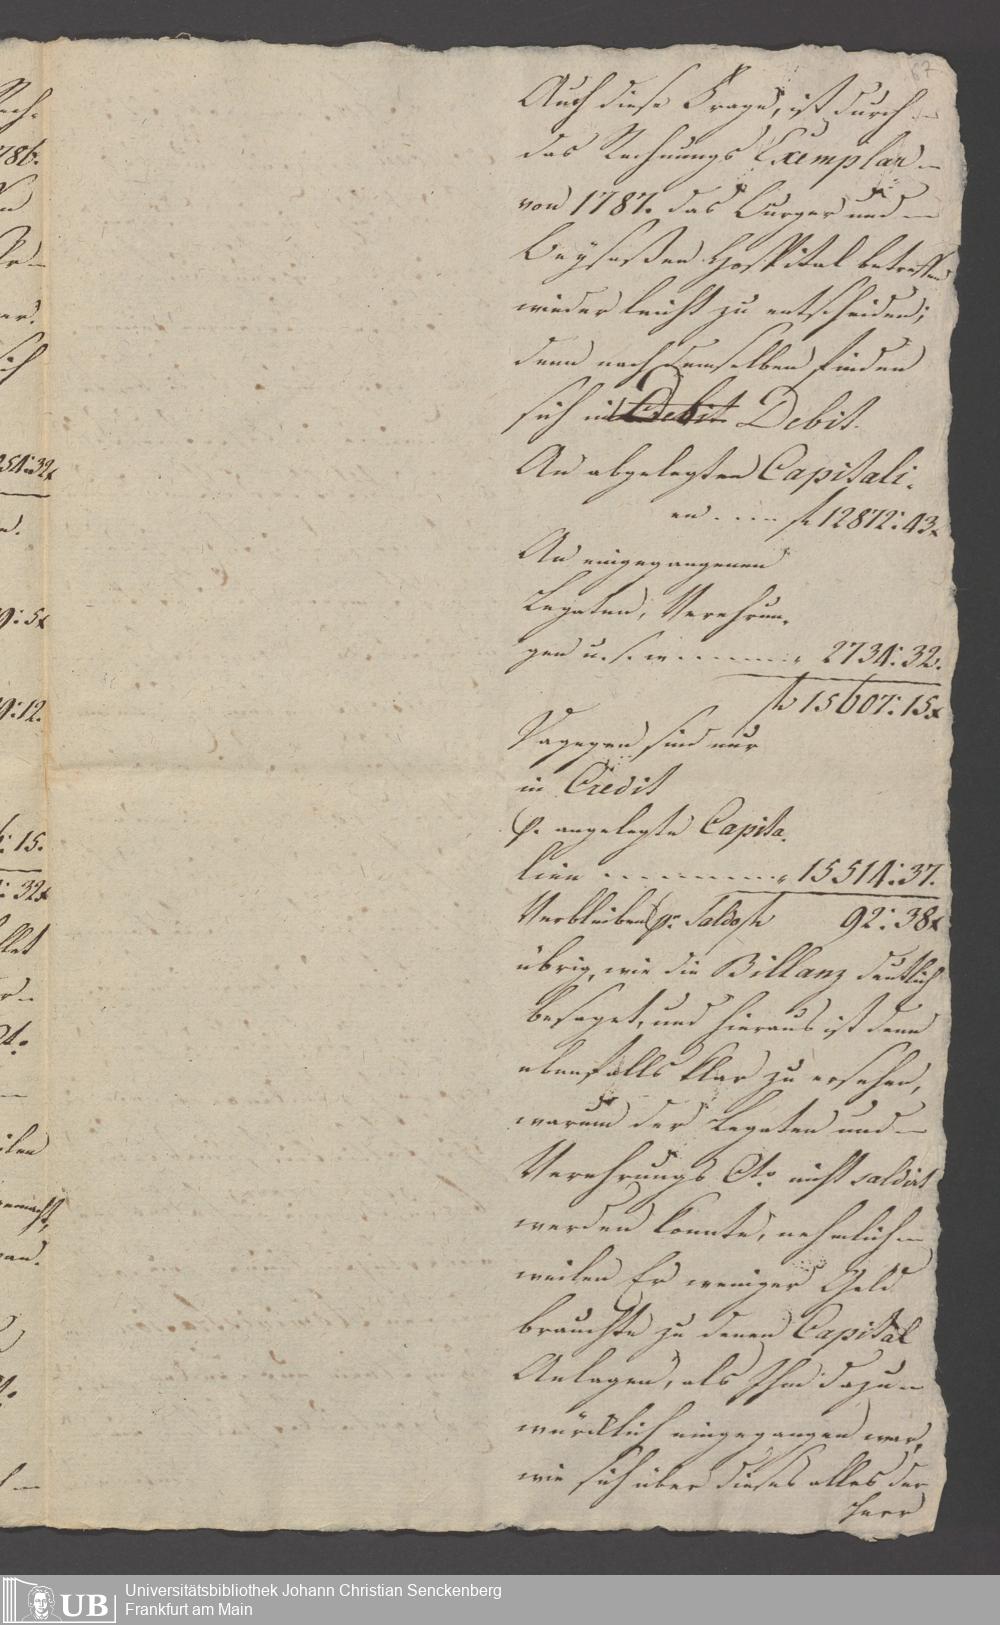 67
Auch diese Frage, ist durch
das Rechnungs Exemplar
von 1787. das Burger und
Beysaßen Hospital betreffend
wieder leicht zu entscheiden;
denn nach demselben finden
sich in Debit Debit.
An abgelegten Capitali-
en .... f. 12872:43x
An eingegangenen
Legaten, Verehrun-
gen u. s. w. ........ 2734:32.
f. 15607:15x
Dagegen sind nur
in Credit
pr. angelegte Capita-
lien ......... 15514:37.
Verbleiben pr. Saldo f. 92:38x
übrig, wie die Billanz deutlich
besaget, und hieraus ist denn
ebenfalls klar zu ersehen,
warum der Legaten und
Verehrungs Cto. nicht saldirt
werden konnte, nehmlich
weilen Er weniger Geld
brauchte zu denen Capital
Anlagen, als Ihm dazu
würcklich eingegangen war,
wie sich über dieses alles der
Herr
Rech-
1786.
254:32x
9:5x
9:12.
:15.
:32x
UB
Universitätsbibliothek Johann Christian Senckenberg
Frankfurt am Main